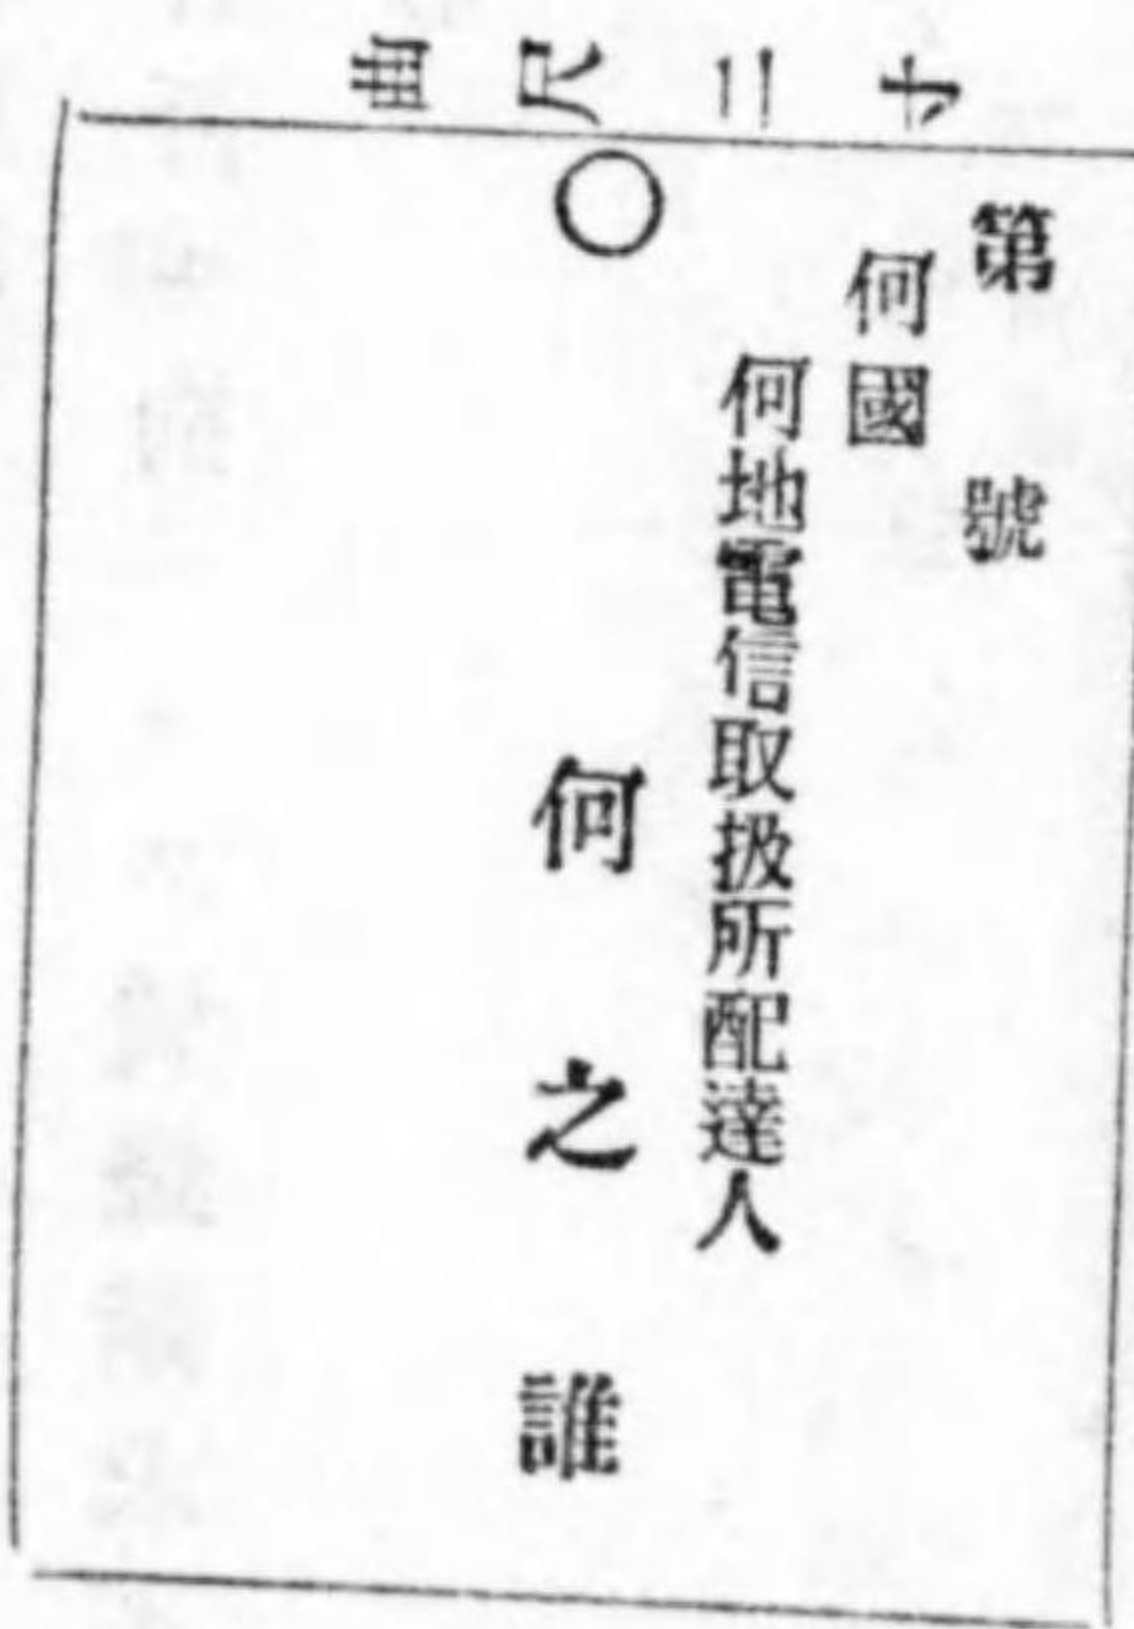 曲尺二寸
第號
何國
何地電信取扱所配達人
何之誰